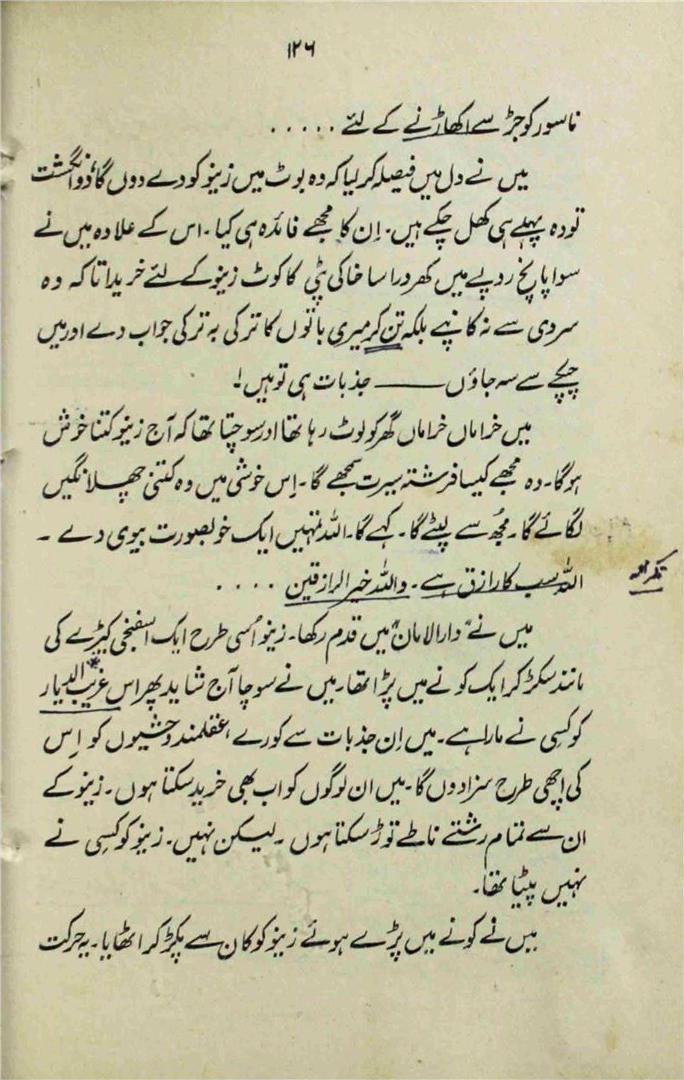 ۱۲۶
ناسور کو جڑ سے اکھاڑنے کے لئے .....
میں نے دل میں فیصلہ کر لیا کہ وہ بوٹ میں زینو کو دے دوں گا، دو انگشت
تو وہ پہلے ہی کھل چکے ہیں۔ اِن کا مجھے فائدہ ہی کیا۔ اس کے علاوہ میں نے
سوا پانچ روپے میں کھردرا سا خاکی پٹی کا کوٹ زینو کے لئے خریدا تا کہ وہ
سردی سے نہ کانپے بلکہ تن کر میری باتوں کا ترکی بہ ترکی جواب دے اور میں
چپکے سے سہ جاؤں —— جذبات ہی تو ہیں!
میں خراماں خراماں گھر کو لوٹ رہا تھا اور سوچتا تھا کہ آج زینو کتنا خوش
ہو گا۔ وہ مجھے کیسا فرشتہ سیرت سمجھے گا۔ اِس خوشی میں وہ کتنی چھلانگیں
لگائے گا۔ مجھ سے لپٹے گا۔ کہے گا۔ اللہ تمہیں ایک خوبصورت بیوی دے ۔
اللہ سب کا رازق ہے۔ واللہ خیر الرازقین ....
میں نے "دارالامان" میں قدم رکھا۔ زینو اُسی طرح ایک اسفنجی کیڑے کی
مانند سکڑ کر ایک کونے میں پڑا تھا۔ میں نے سوچا آج شاید پھر اس غریب الدیار*
کو کسی نے مارا ہے۔ میں اِن جذبات سے کورے، عقلمند وحشیوں کو اِس
کی اچھی طرح سزا دوں گا۔ میں ان لوگوں کو اب بھی خرید سکتا ہوں۔ زینو کے
ان سے تمام رشتے ناطے توڑ سکتا ہوں ۔ لیکن نہیں۔ زینو کو کسی نے
نہیں پیٹا تھا۔
میں نے کونے میں پڑے ہوئے زینو کو کان سے پکڑ کر اٹھایا۔ یہ حرکت